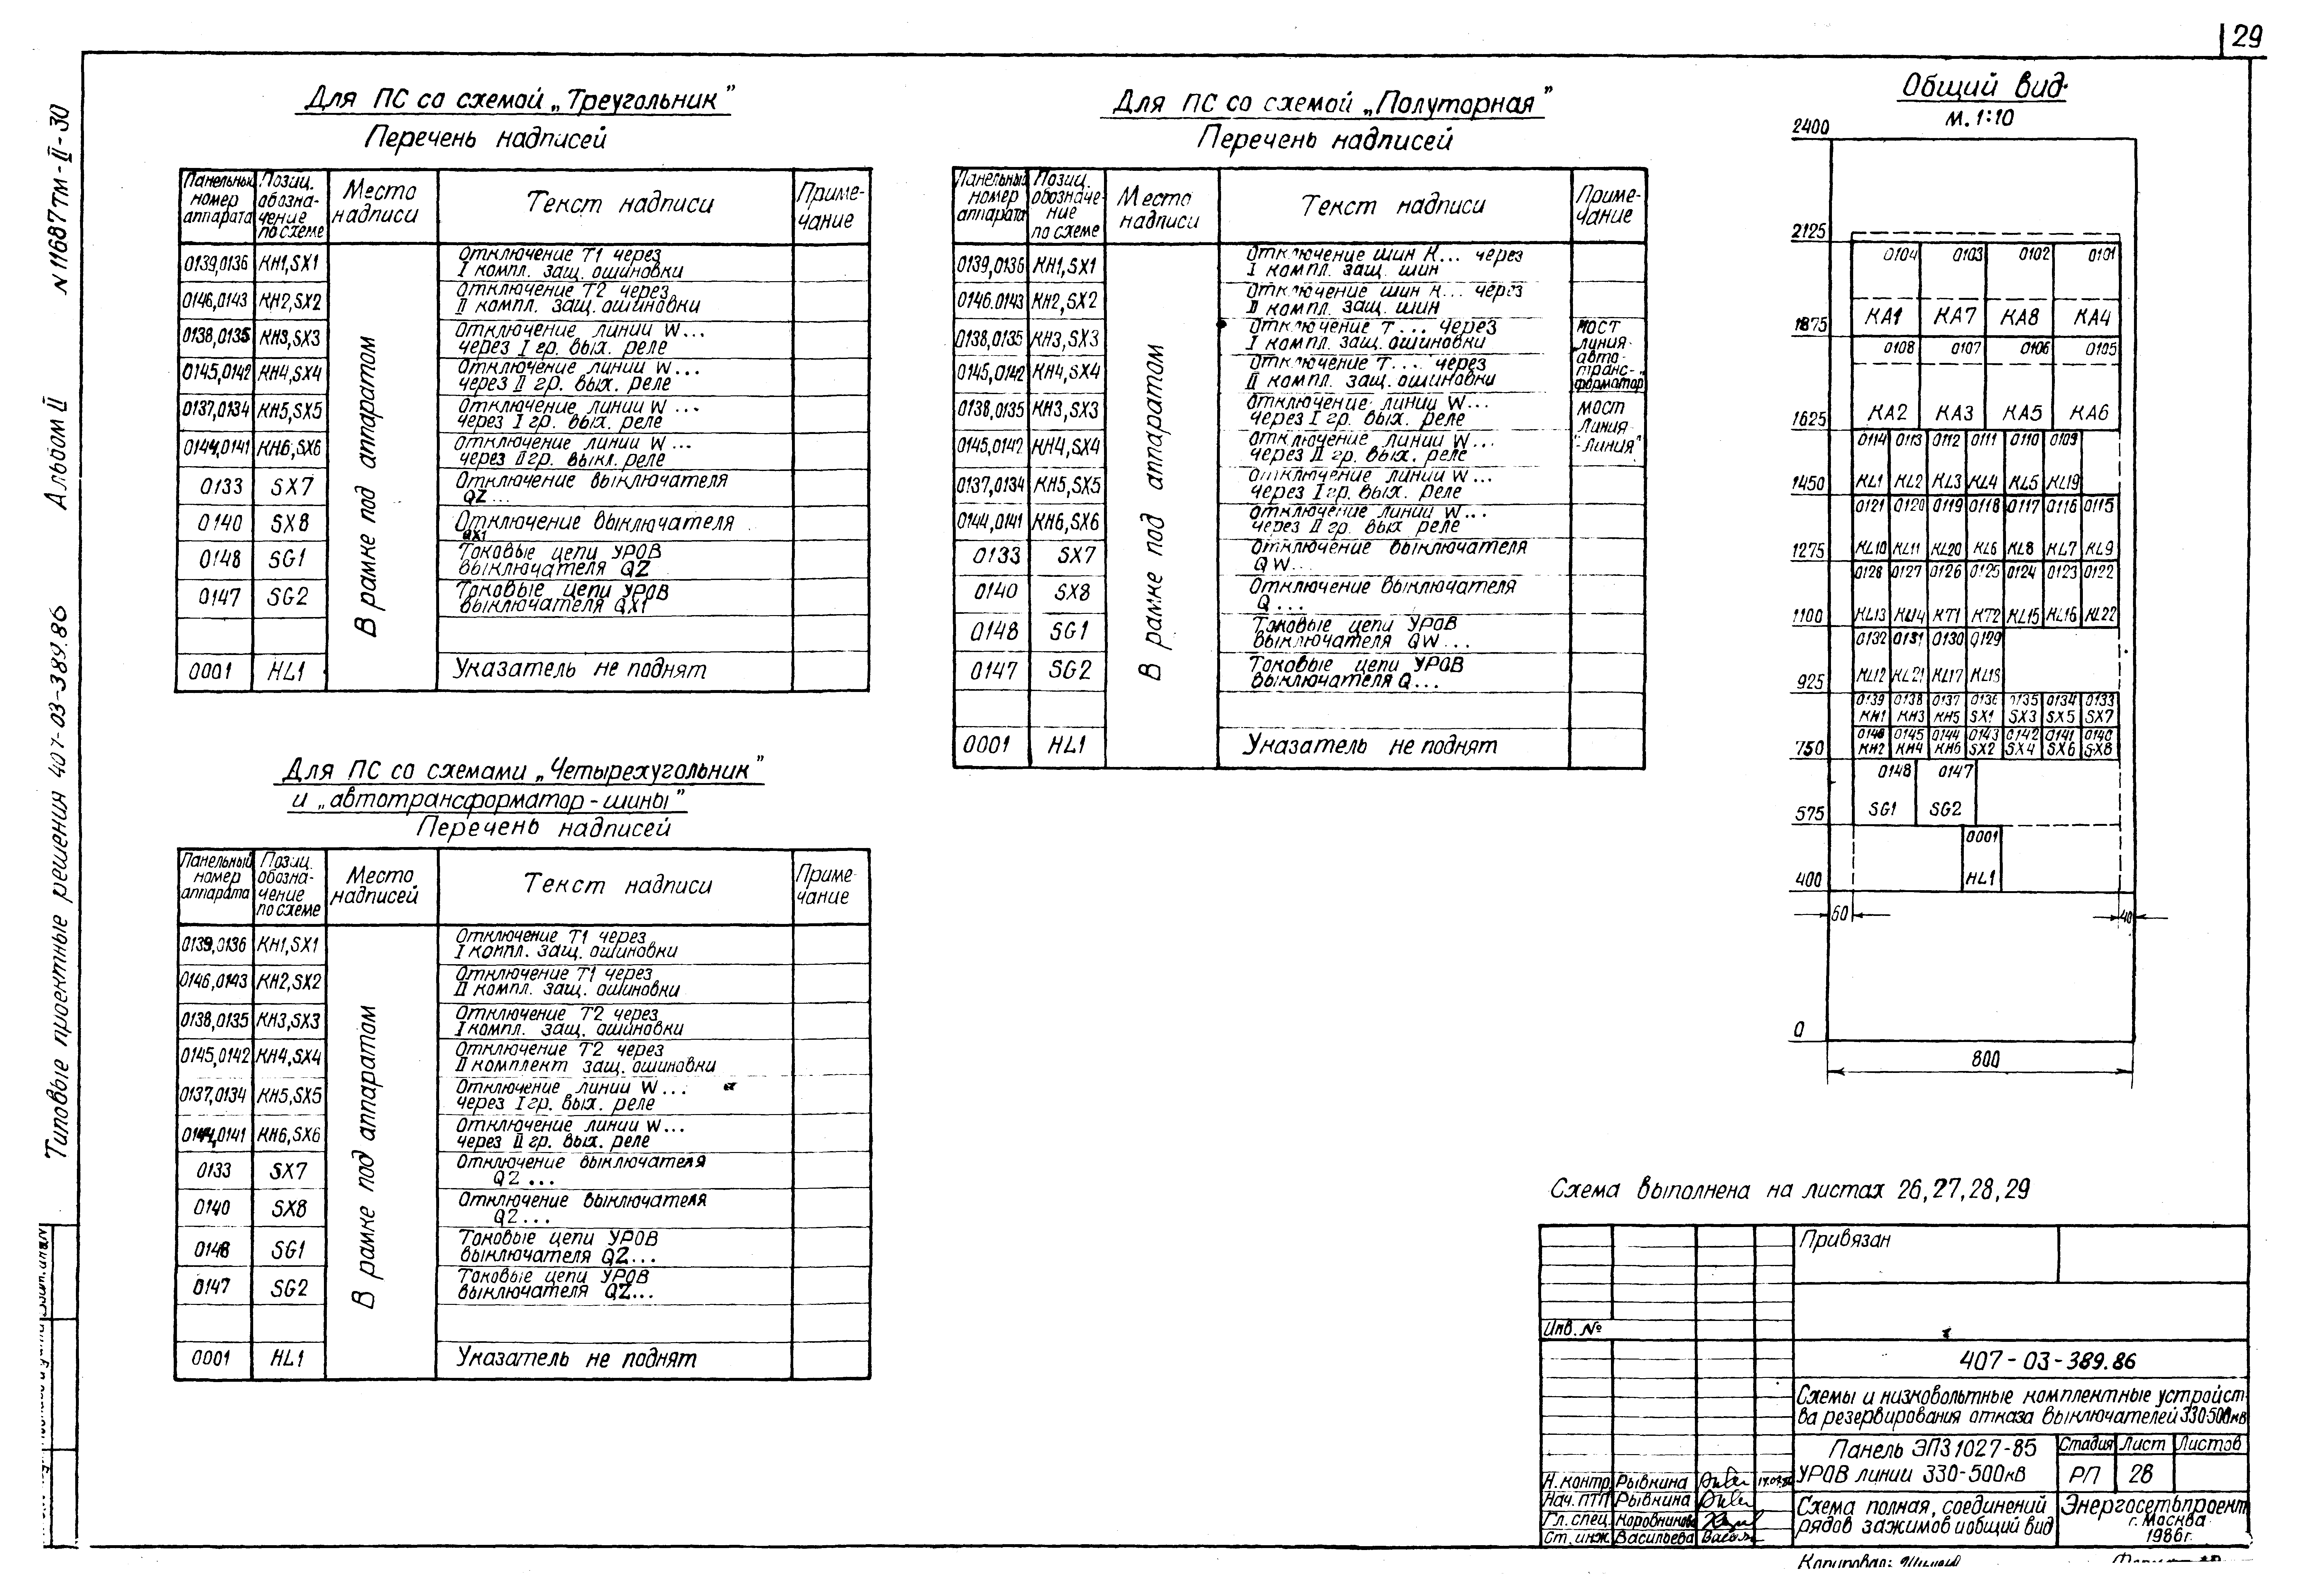 29
N 11687тм-II-30
Альбом II
Типовые проектные решения 407-03-389.86
Для ПС со схемой „Треугольник"
Перечень надписей
Панельный номер аппарата
Позиц. обозначение по схеме
Место надписи
Текст надписи
Примечание
В рамке под аппаратом
0139,0136 КН1,SX1 Отключение Т1 через
I компл. защ. ошиновки
0146,0143 КН2,SX2 Отключение Т2 через
II компл. защ. ошиновки
0138,0135 КН3,SX3 Отключение линии W...
через I гр. вых. реле
0145,0142 КН4,SX4 Отключение линии W...
через II гр. вых. реле
0137,0134 КН5,SX5 Отключение линии W...
через I гр. вых. реле
0144,0141 КН6,SX6 Отключение линии W...
через II гр. выкл. реле
0133 SX7 Отключение выключателя
QZ...
0140 SX8 Отключение выключателя
QX1
0148 SG1 Токовые цепи УРОВ
выключателя QZ
0147 SG2 Токовые цепи УРОВ
выключателя QX1
0001 HL1 Указатель не поднят
Для ПС со схемами „Четырехугольник"
и „автотрансформатор-шины"
Перечень надписей
Панельный номер аппарата
Позиц. обозначение по схеме
Место надписей
Текст надписи
Примечание
В рамке под аппаратом
0139,0136 КН1,SX1 Отключение Т1 через
I компл. защ. ошиновки
0146,0143 КН2,SX2 Отключение Т1 через
II компл. защ. ошиновки
0138,0135 КН3,SX3 Отключение Т2 через
I компл. защ. ошиновки
0145,0142 КН4,SX4 Отключение Т2 через
II комплект защ. ошиновки
0137,0134 КН5,SX5 Отключение линии W...
через I гр. вых. реле
0144,0141 КН6,SX6 Отключение линии W...
через II гр. вых. реле
0133 SX7 Отключение выключателя
QZ...
0140 SX8 Отключение выключателя
QZ...
0148 SG1 Токовые цепи УРОВ
выключателя QZ...
0147 SG2 Токовые цепи УРОВ
выключателя QZ...
0001 HL1 Указатель не поднят
Для ПС со схемой „Полуторная"
Перечень надписей
Панельный номер аппарата
Позиц. обозначение по схеме
Место надписи
Текст надписи
Примечание
В рамке под аппаратом
0139,0136 КН1,SX1 Отключение шин К... через
I компл. защ. шин
0146.0143 КН2,SX2 Отключение шин К... через
II компл. защ. шин
0138,0135 КН3,SX3 Отключение Т... через
I компл. защ. ошиновки
0145,0142 КН4,SX4 Отключение Т.... через
II компл. защ. ошиновки
мост линия- авто-транс-форматор"
0138,0135 КН3,SX3 Отключение линии W...
через I гр. вых. реле
0145,0142 КН4,SX4 Отключение линии W...
через II гр. вых. реле
мост линия "-линия"
0137,0134 КН5,SX5 Отключение линии W...
через I гр. вых. реле
0144,0141 КН6,SX6 Отключение линии W...
через II гр. вых реле
0133 SX7 Отключение выключателя
QW...
0140 SX8 Отключение выключателя
Q...
0148 SG1 Токовые цепи УРОВ
выключателя QW...
0147 SG2 Токовые цепи УРОВ
выключателя Q...
0001 HL1 Указатель не поднят
Общий вид.
М. 1:10
2400
2125
0104 0103 0102 0101
1875 КА1 КА7 КА8 КА4
0108 0107 0106 0105
1625 КА2 КА3 КА5 КА6
0114 0113 0112 0111 0110 0109
1450 KL1 KL2 KL3 KL4 KL5 KL19
0121 0120 0119 0118 0117 0116 0115
1275 KL10 KL11 KL20 KL6 KL8 KL7 KL9
0128 0127 0126 0125 0124 0123 0122
1100 KL13 KL14 КТ1 КТ2 KL15 KL16 KL22
0132 0131 0130 0129
925 KL12 KL21 KL17 KL18
0139 0138 0137 0136 0135 0134 0133
КН1 КН3 КН5 SX1 SX3 SX5 SX7
0146 0145 0144 0143 0142 0141 0140
750 КН2 КН4 КН6 SX2 SX4 SX6 SX8
0148 0147
575 SG1 SG2
0001
400 HL1
60 40
0
800
Схема выполнена на листах 26,27,28,29
Привязан
Инв. №
407-03-389.86
Схемы и низковольтные комплектные устройст-
ва резервирования отказа выключателей 330-500кв
Панель ЭПЗ 1027-85
УРОВ линии 330-500кВ
Стадия Лист Листов
РП 28
Н. контр. Рывкина
Нач. ПТП Рывкина
Гл. спец. Коровникова
Ст. инж. Васильева
Схема полная, соединений
рядов зажимов и общий вид
Энергосетьпроект
г. Москва
1986г.
Копировал: